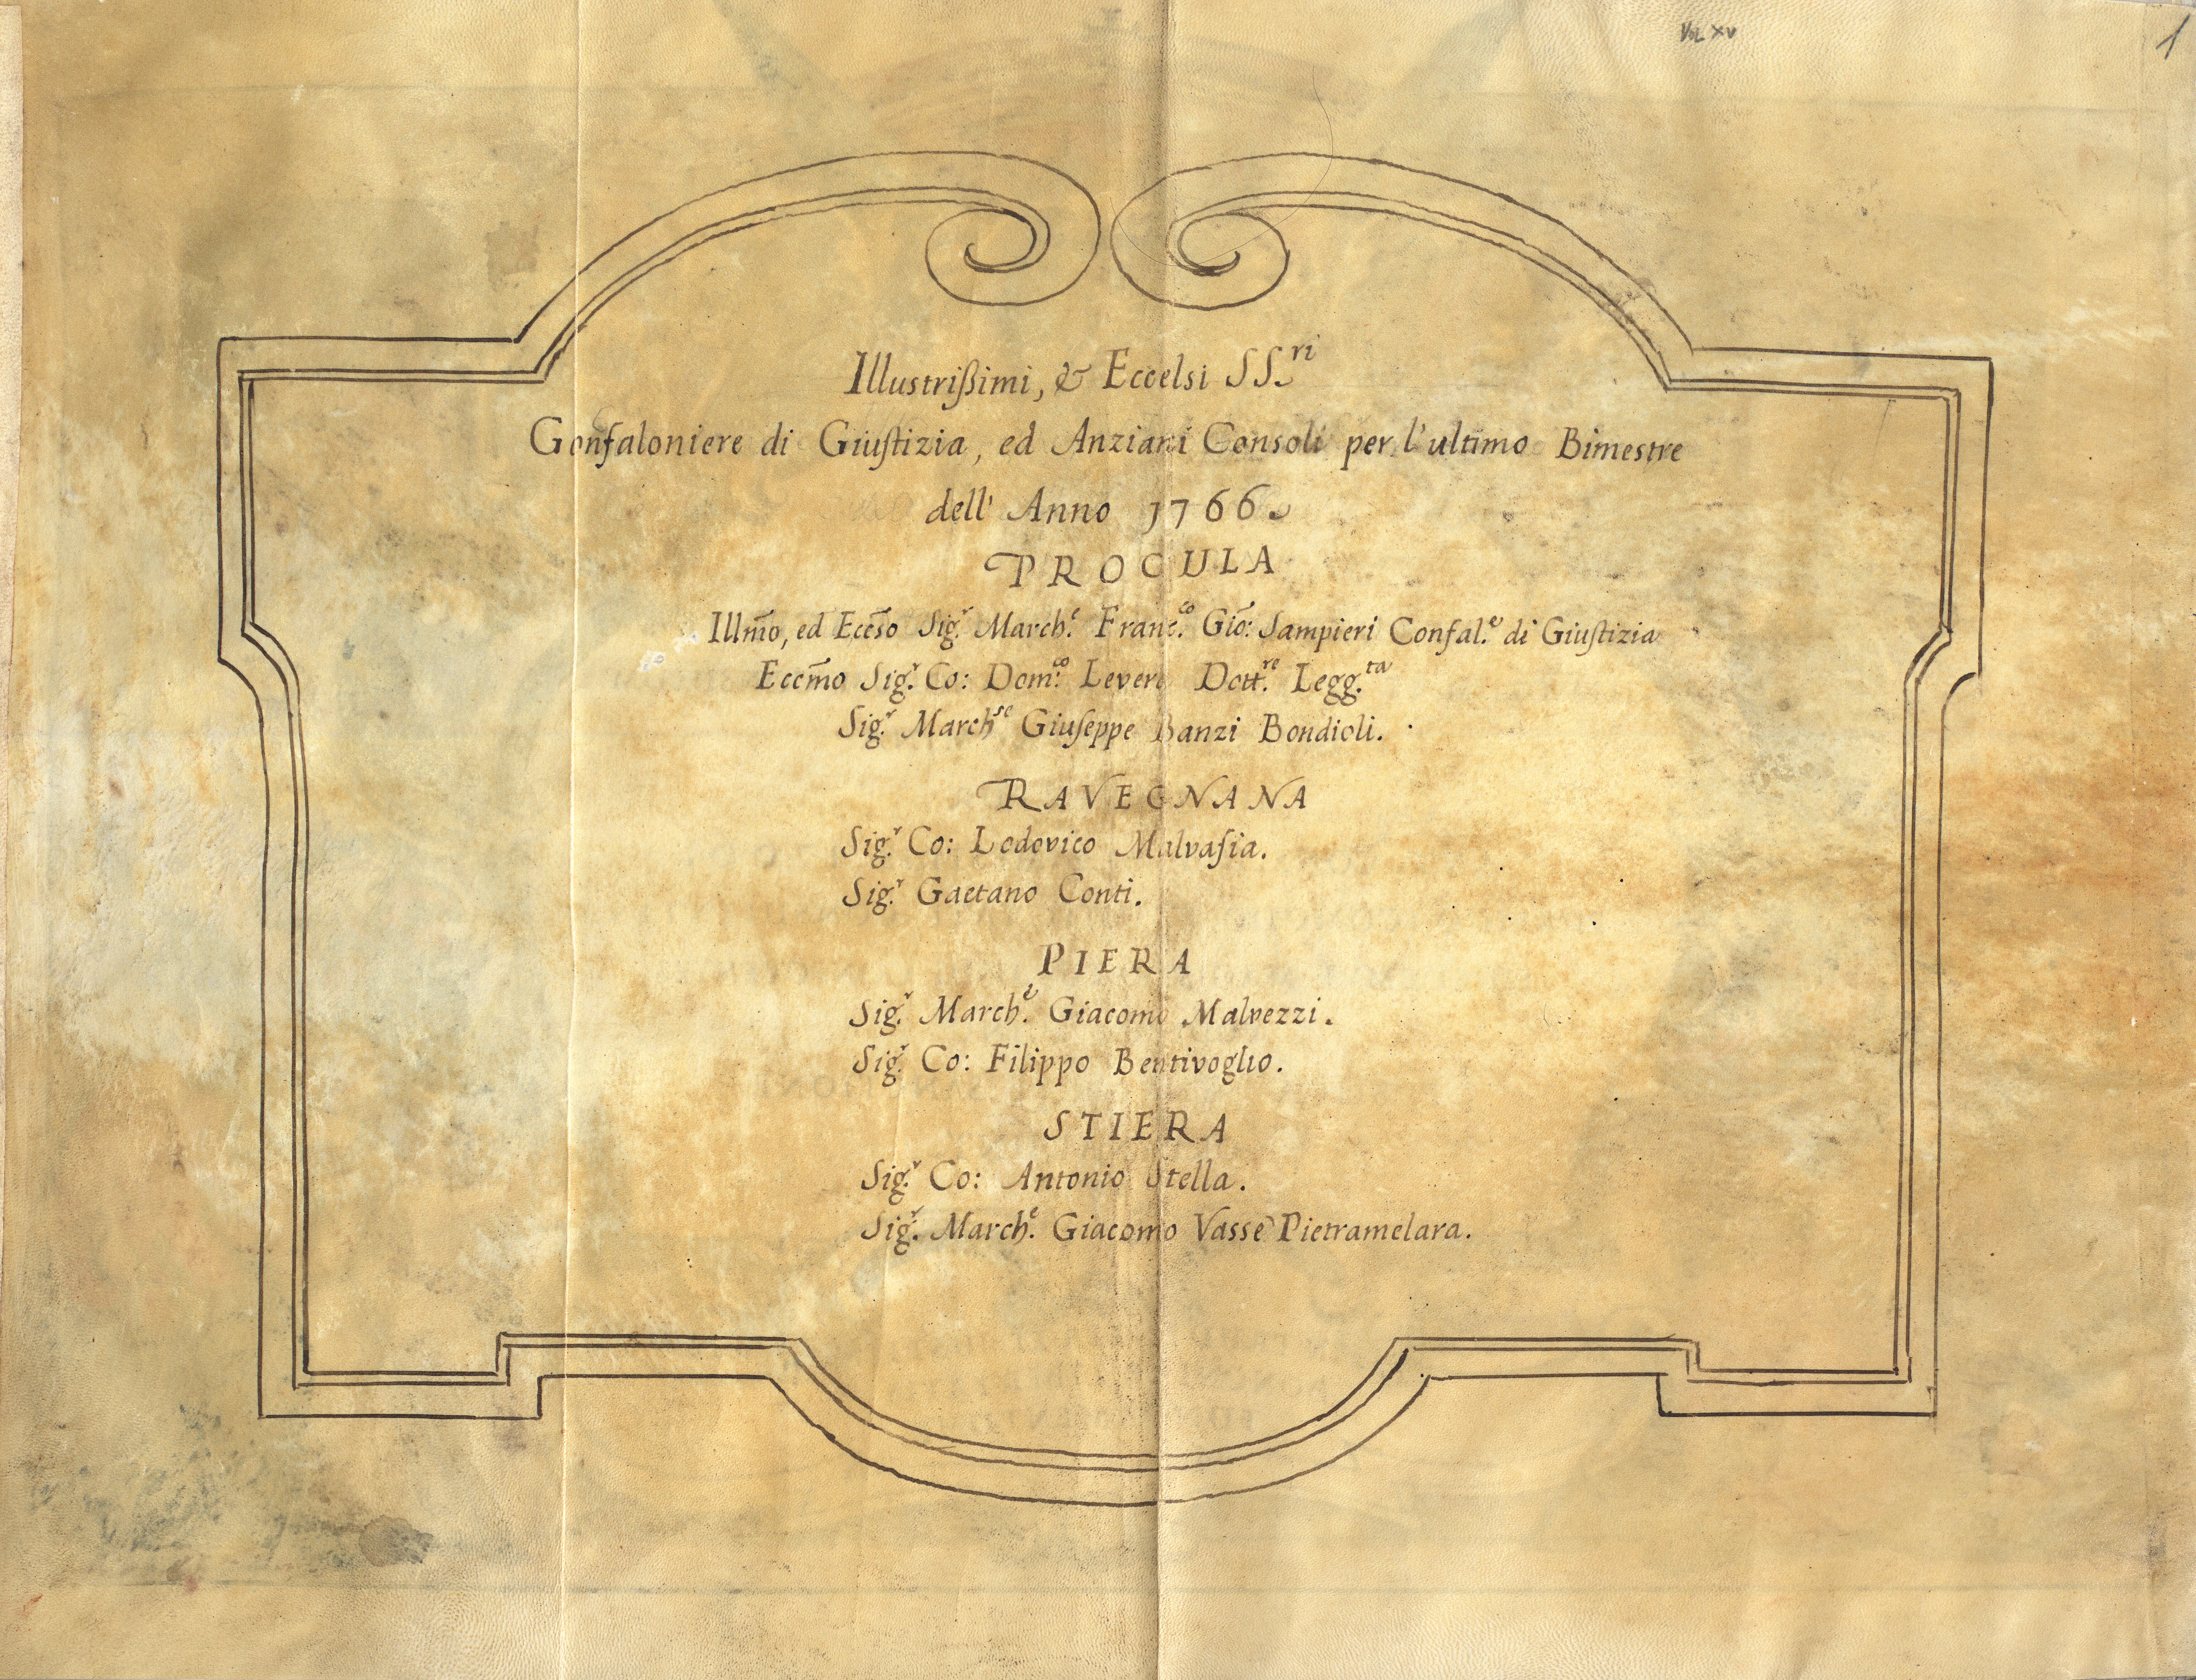 Vol XV
1
Illustrißimi, & Eccelsi SS.ri
Gonfaloniere di Giuſtizia, ed Anziani Consoli per l'ultimo Bimestre
dell' Anno 1766.
PROCULA
Illm̃o, ed Ecce͠so Sig.r March.e Franc.co Gio͠: Sampieri Confal.e di Giuſtizia
Eccm̃o Sig.r Co: Dom.co Levera Dott.re Legg.ta
Sig.r March.se Giuſeppe Banzi Bondioli.
RAVEGNANA
Sig.r Co: Lodovico Malvaſia.
Sig.r Gaetano Conti.
PIERA
Sig.r March.e Giacomo Malvezzi.
Sig.r Co: Filippo Bentivoglio.
STIERA
Sig.r Co: Antonio Stella.
Sig.r March.e Giacomo Vassè Pietramelara.